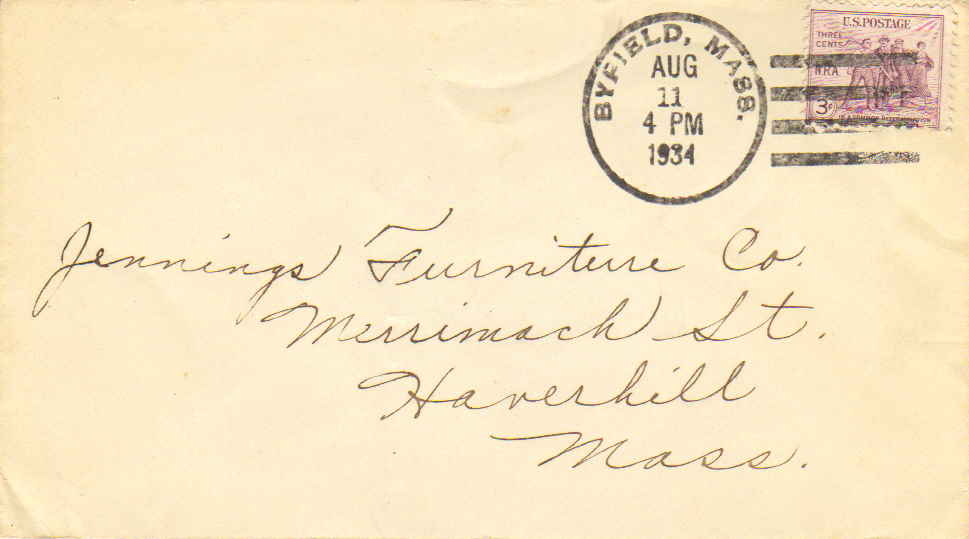 U.S.POSTAGE
THREE
CENTS
N.R.A
3¢
BYFIELD, MASS.
AUG
11
4 PM
1934
Jennings Furniture Co.
Merrimack St.
Haverhill
Mass.